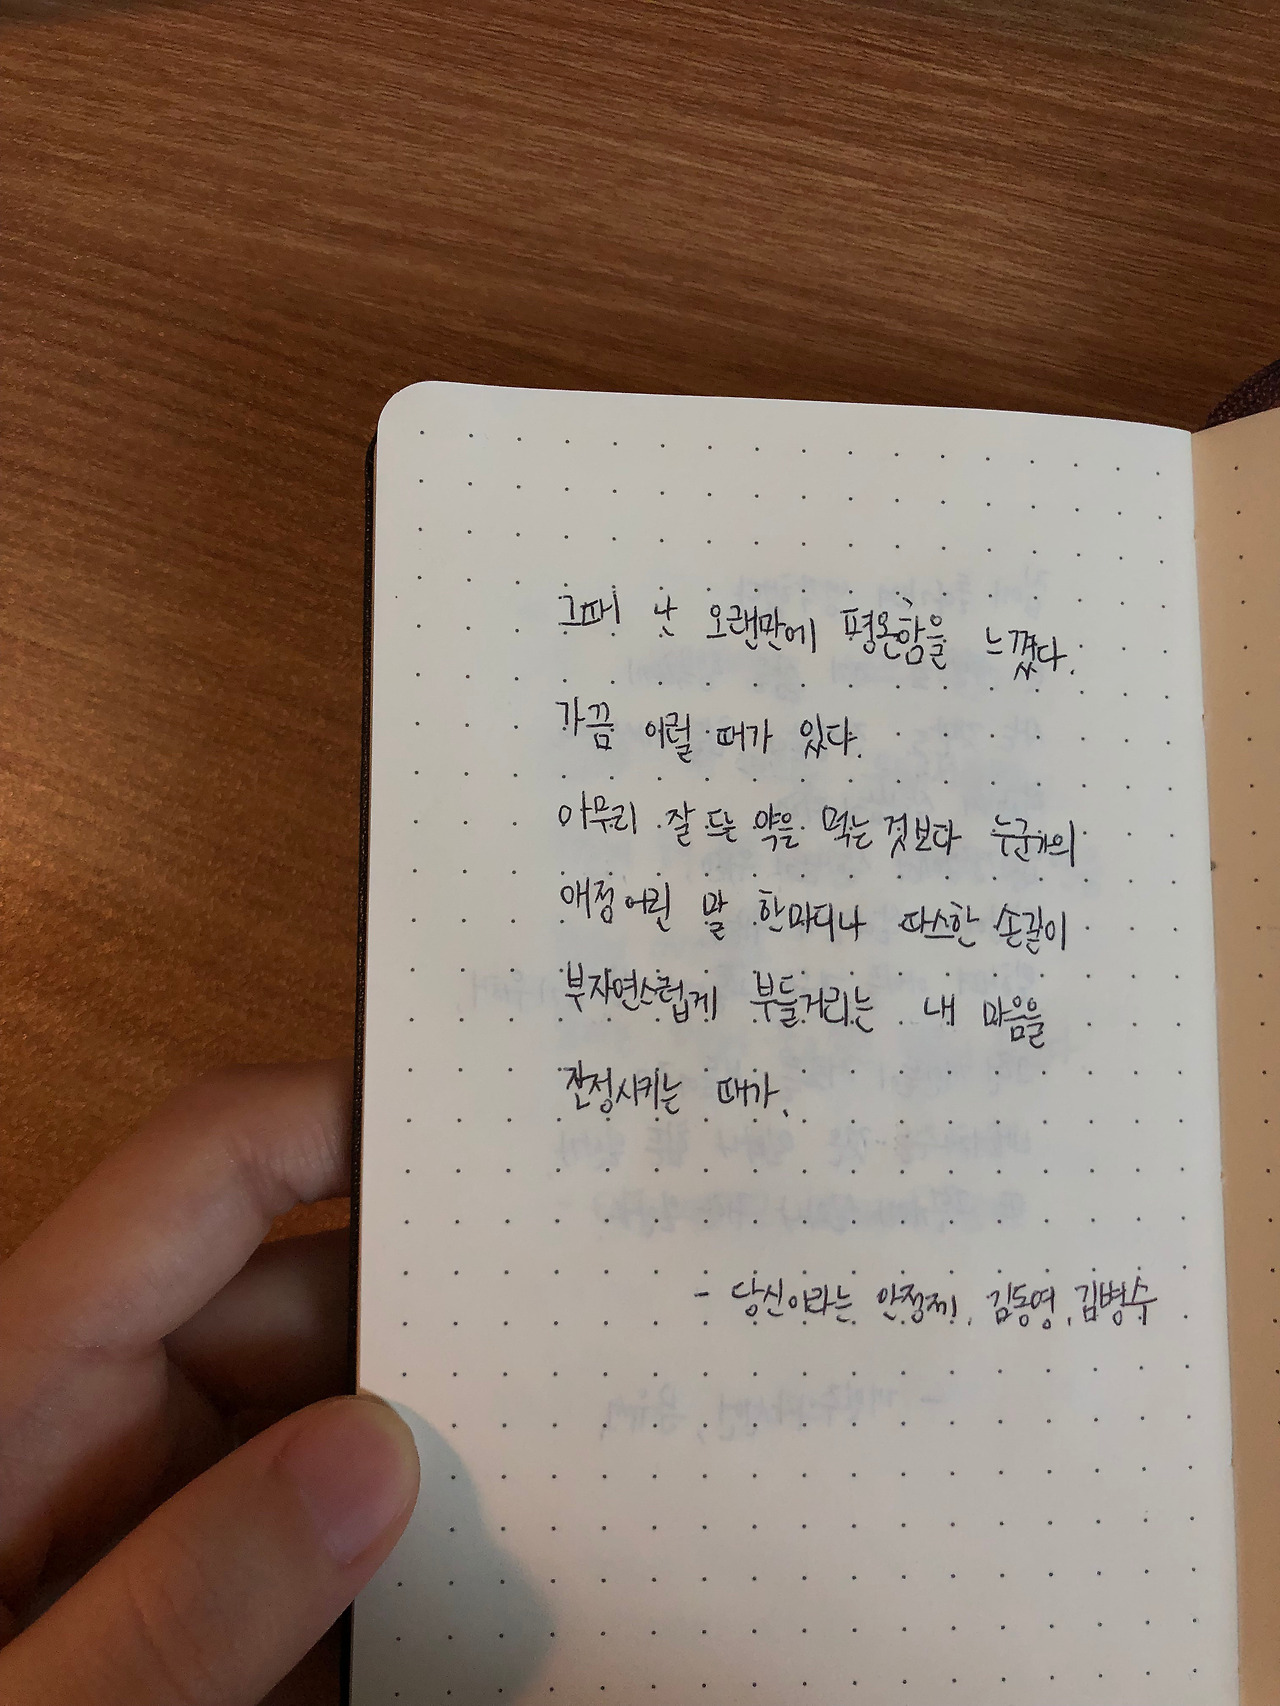 그때 난 오랜만에 평온함을 느꼈다.
가끔 이럴 때가 있다.
아무리 잘 드는 약을 먹는 것보다 누군가의
애정어린 말 한마디나 따스한 손길이
부자연스럽게 부들거리는 내 마음을
잔정시키는 때가.
- 당신이라는 안정제, 김동영, 김병수